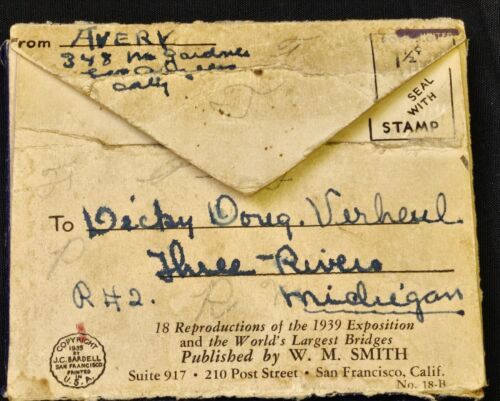 From AVERY
348 No Gardner
Los Angeles
Calif
UNITED
1½¢
SEAL
WITH
STAMP
To Dicky Doug. Verheul
Three Rivers
R#2. Michigan
18 Reproductions of the 1939 Exposition
and the World's Largest Bridges
Published by W. M. SMITH
Suite 917 • 210 Post Street • San Francisco, Calif.
No. 18-B
COPYRIGHT
BY
J.C. BARDELL
SAN FRANCISCO
PRINTED
IN
U.S.A.